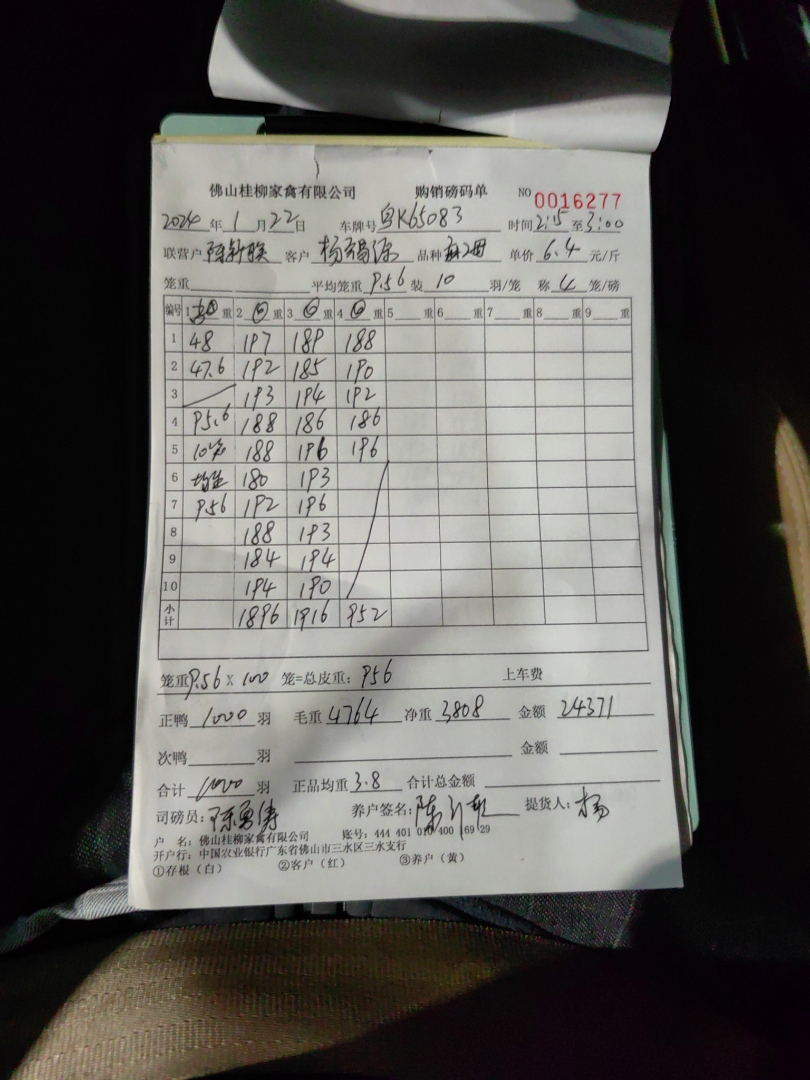 佛山桂柳家禽有限公司 购销磅码单 NO 0016277
2024 年 1 月 22 日 车牌号 粤K65083 时间 2:15 至 3:00
联营户 客户 杨福源 品种 单价 6.4 元/斤
笼重 平均笼重 9.56 装 10 羽/笼 称 4 笼/磅
编号 1 重 2 重 3 重 4 重 5 重 6 重 7 重 8 重 9 重
1 48 197 189 188
2 47.6 192 185 190
3 193 194 192
4 95.6 188 186 186
5 10笼 188 196 196
6 180 193
7 9.56 192 196
8 188 193
9 184 194
10 194 190
小计 1896 1916 952
笼重 9.56 X 100 笼=总皮重: 956 上车费
正鸭 1000 羽 毛重 4764 净重 3808 金额 24371
次鸭 羽 金额
合计 1000 羽 正品均重 3.8 合计总金额
司磅员: 养户签名: 提货人: 杨
户 名: 佛山桂柳家禽有限公司 账号: 444 401 010 400 169 29
开户行: 中国农业银行广东省佛山市三水区三水支行
①存根(白) ②客户(红) ③养户(黄)